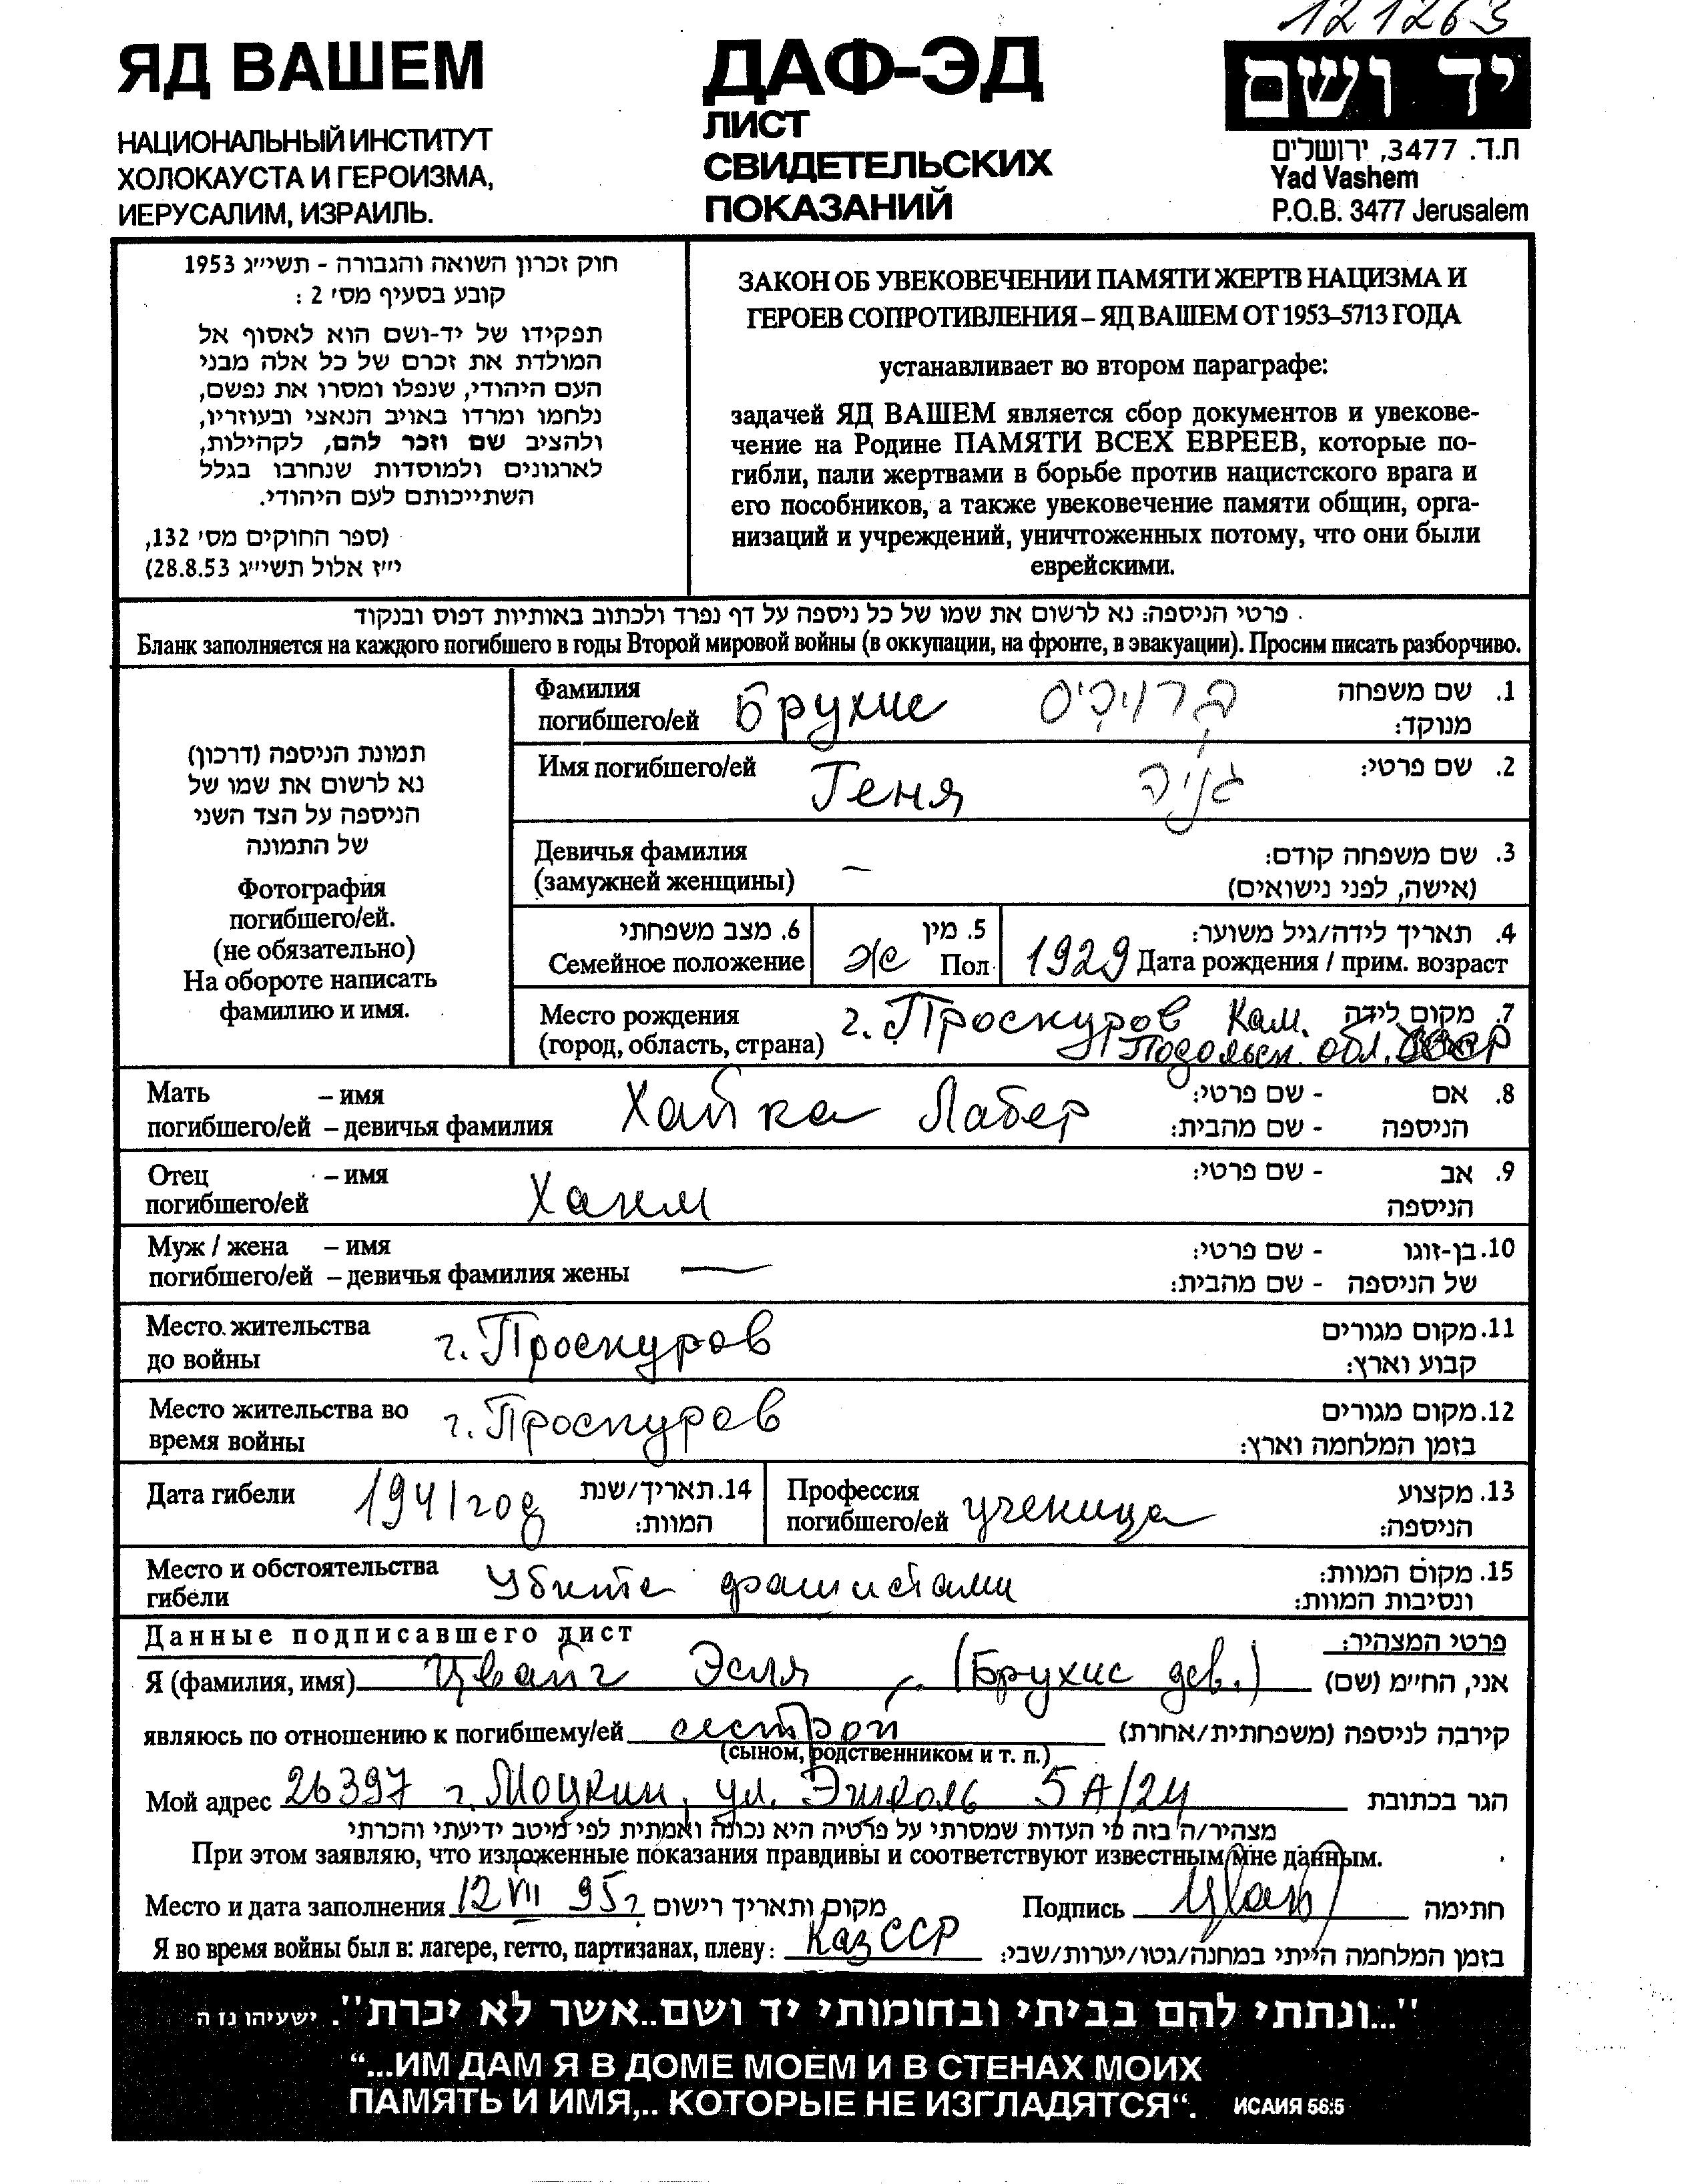 121263
ЯД ВАШЕМ
НАЦИОНАЛЬНЫЙ ИНСТИТУТ
ХОЛОКАУСТА И ГЕРОИЗМА,
ИЕРУСАЛИМ, ИЗРАИЛЬ.
ДАФ-ЭД
ЛИСТ
СВИДЕТЕЛЬСКИХ
ПОКАЗАНИЙ
יד ושם
ת.ד. 3477, ירושלים
Yad Vashem
P.O.B. 3477 Jerusalem
חוק זכרון השואה והגבורה - תשי״ג 1953
קובע בסעיף מס׳ 2 :
תפקידו של יד-ושם הוא לאסוף אל
המולדת את זכרם של כל אלה מבני
העם היהודי, שנפלו ומסרו את נפשם,
נלחמו ומרדו באויב הנאצי ובעוזריו,
ולהציב שם וזכר להם, לקהילות,
לארגונים ולמוסדות שנחרבו בגלל
השתייכותם לעם היהודי.
(ספר החוקים מס׳ 132,
י״ז אלול תשי״ג 28.8.53)
ЗАКОН ОБ УВЕКОВЕЧЕНИИ ПАМЯТИ ЖЕРТВ НАЦИЗМА И
ГЕРОЕВ СОПРОТИВЛЕНИЯ – ЯД ВАШЕМ ОТ 1953–5713 ГОДА
устанавливает во втором параграфе:
задачей ЯД ВАШЕМ является сбор документов и увекове-
чение на Родине ПАМЯТИ ВСЕХ ЕВРЕЕВ, которые по-
гибли, пали жертвами в борьбе против нацистского врага и
его пособников, а также увековечение памяти общин, орга-
низаций и учреждений, уничтоженных потому, что они были
еврейскими.
פרטי הניספה: נא לרשום את שמו של כל ניספה על דף נפרד ולכתוב באותיות דפוס ובנקוד
Бланк заполняется на каждого погибшего в годы Второй мировой войны (в оккупации, на фронте, в эвакуации). Просим писать разборчиво.
תמונת הניספה (דרכון)
נא לרשום את שמו של
הניספה על הצד השני
של התמונה
Фотография
погибшего/ей.
(не обязательно)
На обороте написать
фамилию и имя.
Фамилия
погибшего/ей Брухис ברוכיס
1. שם משפחה
מנוקד:
Имя погибшего/ей Геня גניה 2. שם פרטי:
Девичья фамилия
(замужней женщины) —
3. שם משפחה קודם:
(אישה, לפני נישואים)
6. מצב משפחתי
Семейное положение
5. מין
Пол ж
4. תאריך לידה/גיל משוער:
1929 Дата рождения / прим. возраст
Место рождения
(город, область, страна) г. Проскуров Кам.
Подольск. обл. СССР
7. מקום לידה
Мать – имя
погибшего/ей – девичья фамилия Хайка Лабер
8. אם - שם פרטי:
הניספה - שם מהבית:
Отец – имя
погибшего/ей Хаим
9. אב - שם פרטי:
הניספה
Муж / жена – имя
погибшего/ей – девичья фамилия жены —
10. בן-זוגו - שם פרטי:
של הניספה - שם מהבית:
Место жительства
до войны г. Проскуров
11. מקום מגורים
קבוע וארץ:
Место жительства во
время войны г. Проскуров
12. מקום מגורים
בזמן המלחמה וארץ:
Дата гибели 1941 год
14. תאריך/שנת
המוות:
Профессия
погибшего/ей ученица
13. מקצוע
הניספה:
Место и обстоятельства
гибели Убита фашистами
15. מקום המוות:
ונסיבות המוות:
Данные подписавшего лист פרטי המצהיר:
Я (фамилия, имя) Цвайг Эсля (Брухис дев.) אני, הח״מ (שם)
являюсь по отношению к погибшему/ей сестрой קירבה לניספה (משפחתית/אחרת)
(сыном, родственником и т. п.)
Мой адрес 26397 г. Моцкин, ул. Эшколь 5А/24 הגר בכתובת
מצהיר/ה בזה כי העדות שמסרתי על פרטיה היא נכונה ואמתית לפי מיטב ידיעתי והכרתי
При этом заявляю, что изложенные показания правдивы и соответствуют известным мне данным.
Место и дата заполнения 12 VII 95г מקום ותאריך רישום Подпись Цвайг חתימה
Я во время войны был в: лагере, гетто, партизанах, плену: КазССР בזמן המלחמה הייתי במחנה/גטו/יערות/שבי:
"...ונתתי להם בביתי ובחומותי יד ושם..אשר לא יכרת". ישעיהו נו ה
“...ИМ ДАМ Я В ДОМЕ МОЕМ И В СТЕНАХ МОИХ
ПАМЯТЬ И ИМЯ,.. КОТОРЫЕ НЕ ИЗГЛАДЯТСЯ“. ИСАИЯ 56:5